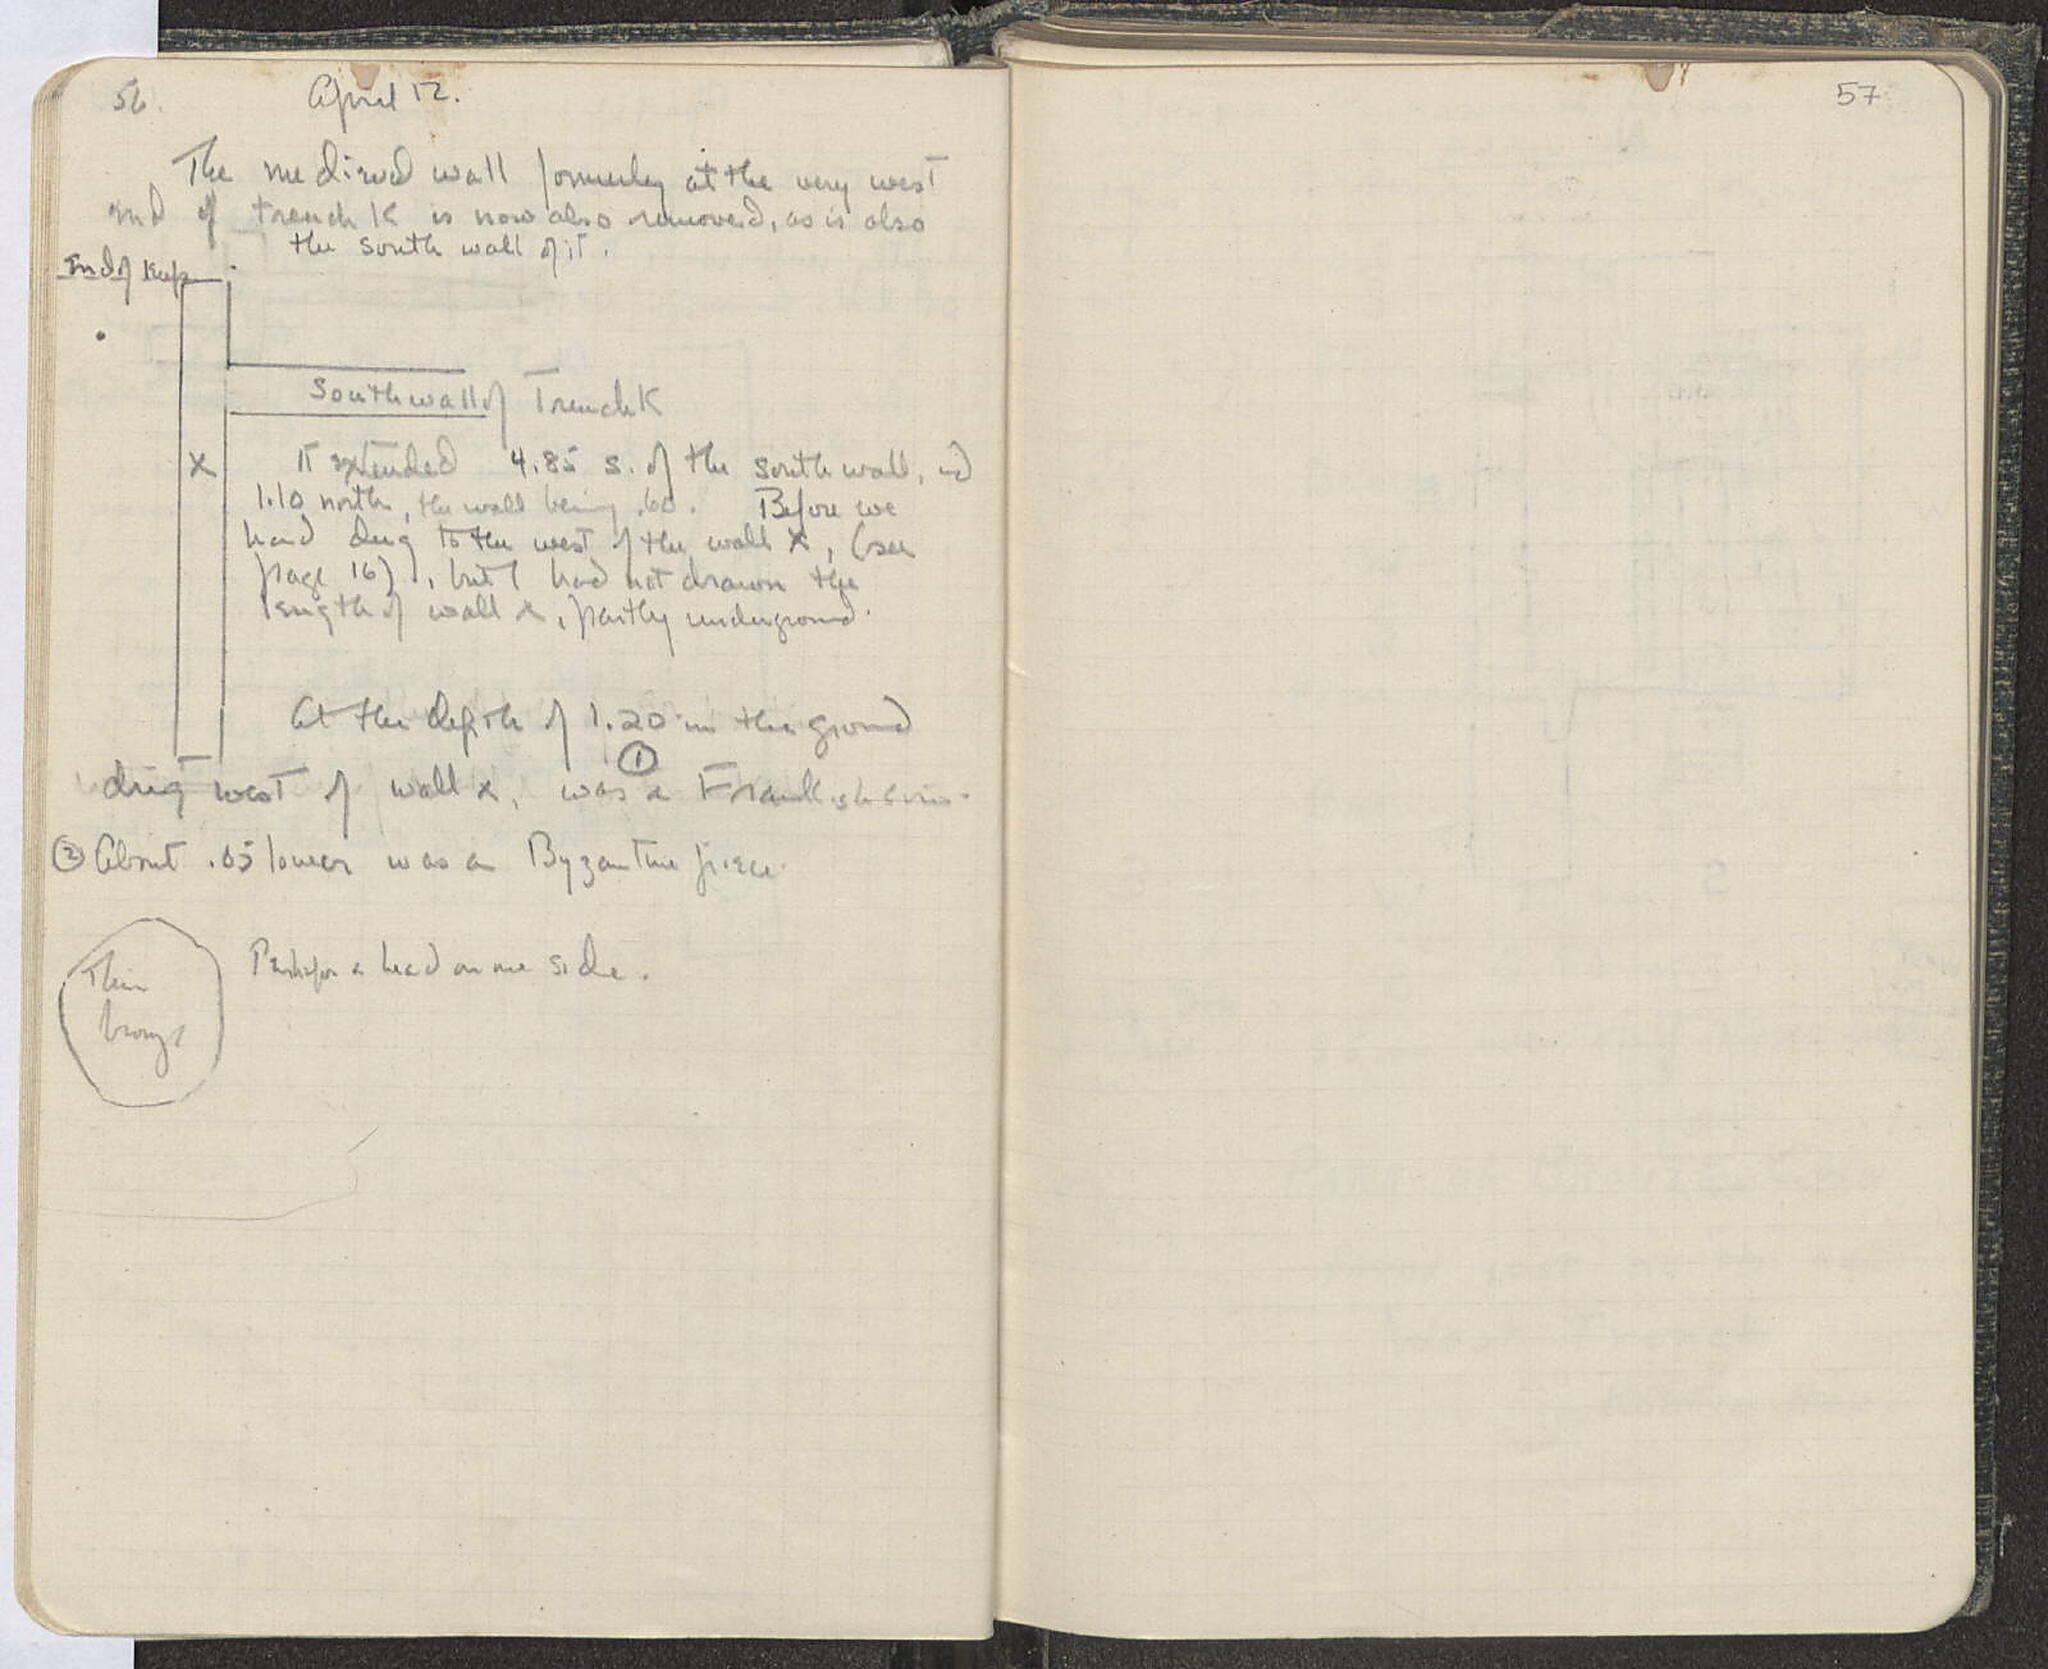 56.
April 12.
The medieval wall formerly at the very west
end of trench K is now also removed, as is also
the south wall of it.
End of
South wall of Trench K
x
It extended 4.85 s. of the south wall, and
1.10 north, the wall being .60. Before we
had dug to the west of the wall x, (see
page 16), but I had not drawn the
length of wall x, partly underground.
At the depth of 1.20 in the ground
①
dug west of wall x, was a Frankish coin.
② About .05 lower was a Byzantine piece.
Thin
bronze
Perhaps a head on one side.
57